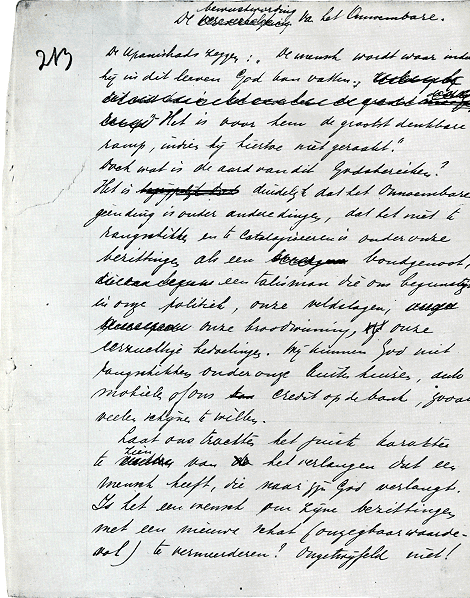 bewustwording
De van het Onnoembare.
213
De Upanishads zeggen: „De mensch wordt waar indien
hij in dit leven God kan vatten;
de grootst
Het is voor hem de grootst denkbare
ramp, indien hij hiertoe niet geraakt."
Doch wat is de aard van dit Godsbereiken?
Het is duidelijk dat het Onnoembare
geen ding is onder andere dingen, dat het niet te
rangschikken en te catalogiseeren is onder onze
bezittingen als een bondgenoot,
een talisman die ons begunstigt
in onze politiek, onze veldslagen,
onze broodwinning, onze
eerzuchtige bedoelingen. Wij kunnen God niet
rangschikken onder onze buitenhuizen, auto
mobielen of ons credit op de bank, zooals
velen schijnen te willen.
Laat ons trachten het juist karakter
te zien van het verlangen dat een
mensch heeft, die naar zijn God verlangt.
Is het een wensch om zijne bezittingen
met een nieuwe schat (onzegbaar waarde-
vol) te vermeerderen? Ongetwijfeld niet!